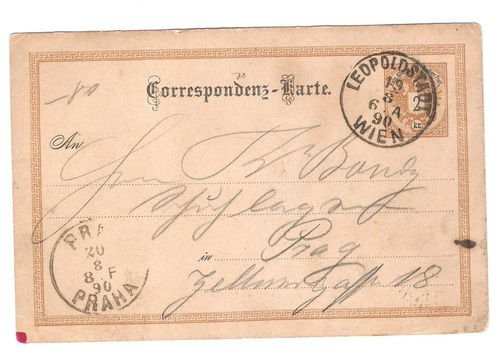 -80
Correspondenz-Karte.
LEOPOLDSTADT
19
8
6 A
90
WIEN
2
Kr
An
Herrn K. Bondy
in Prag
Zeltnergasse 18
PRA
20
8
8 F
90
PRAHA